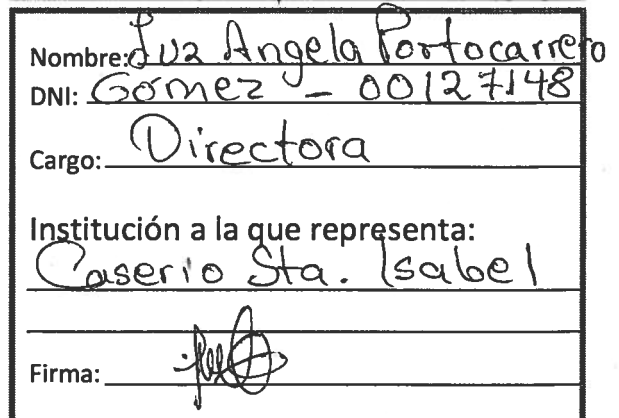 Nombre: Luz Angela Portocarrero
DNI: Gómez - 00127148
Cargo: Directora
Institución a la que representa:
Caserio Sta. Isabel
Firma: